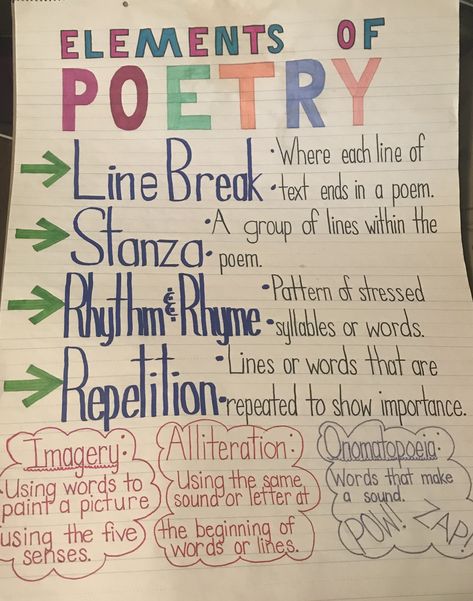 ELEMENTS OF
POETRY
Line Break • Where each line of
• text ends in a poem.
Stanza • A group of lines within the
• poem.
Rhythm & Rhyme • Pattern of stressed
• syllables or words.
Repetition • Lines or words that are
• repeated to show importance.
Imagery:
• Using words to
paint a picture
using the five
senses.
Alliteration:
Using the same
sound or letter at
the beginning of
words or lines.
Onomatopoeia:
Words that make
a sound.
POW! ZAP!